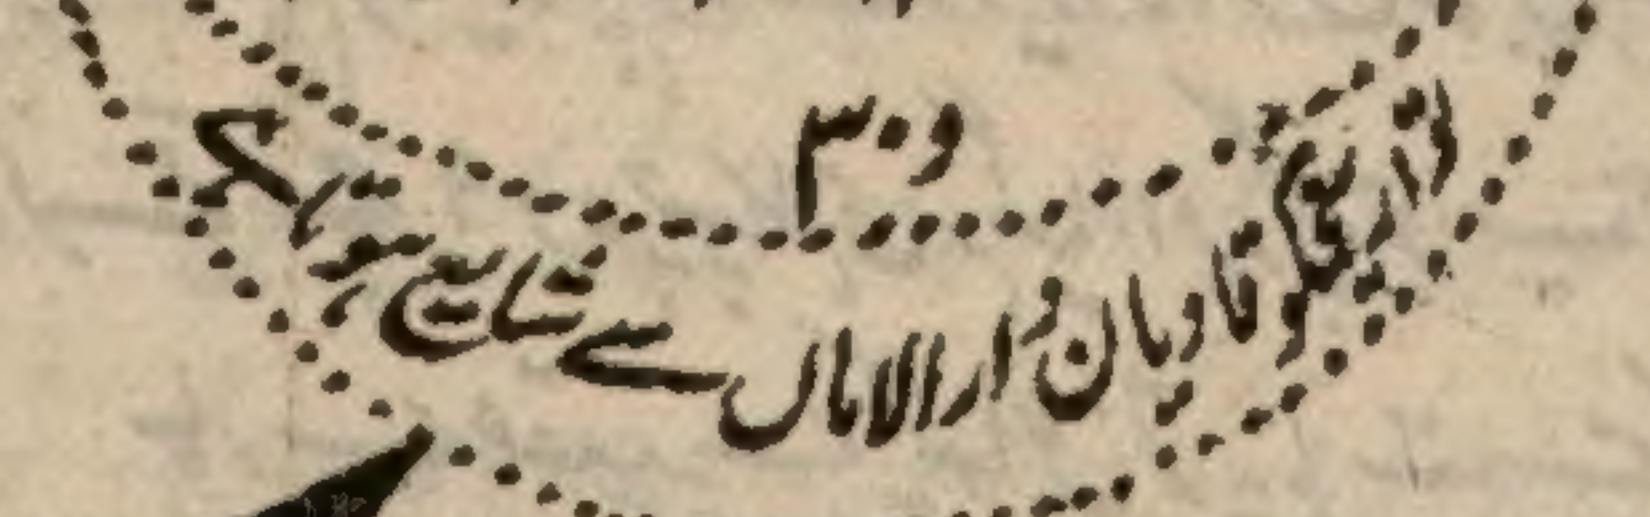 و ۳۰
تواریخ کو قادیان دارالاماں سے شایع ہوتا ہے